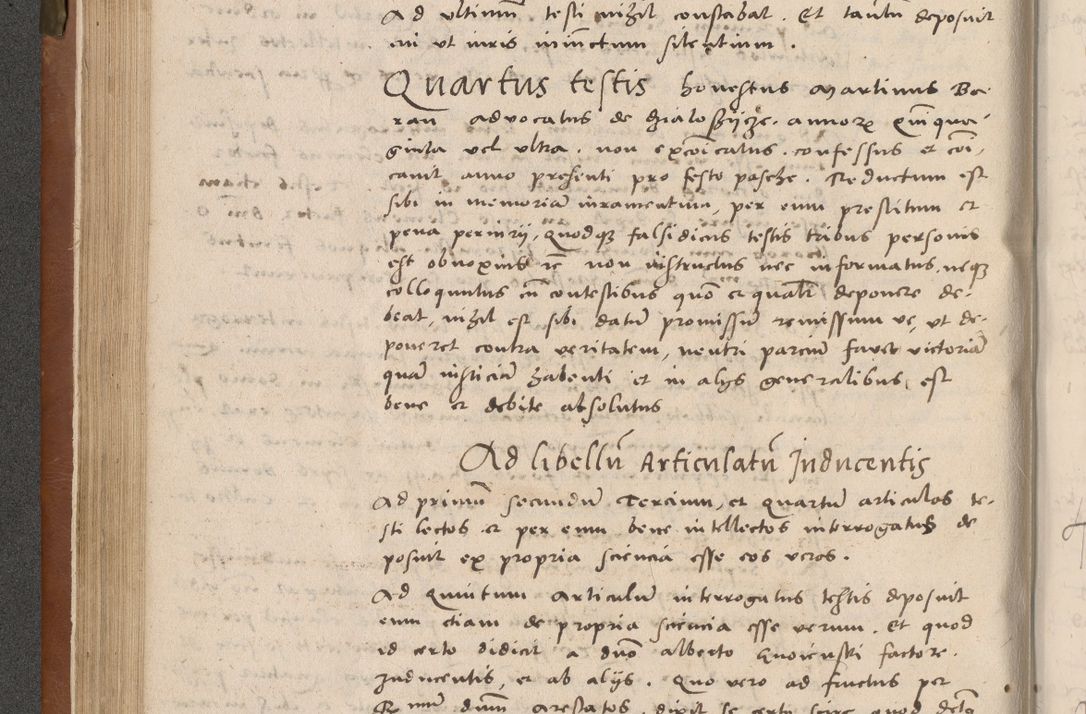 Ad ultimum testi nihil constabat. Et tantum deposuit
ei ut iuris iniunctum silentium.
Quartus testis honestus Martinus Ba-
ran advocatus de Bialossijcze annorum Quinqua-
ginta vel ultra. non excoicatus. confessus et coi-
cavit anno presenti pro festo pasche. Reductum est
sibi in memoriam iuramentum, per eum prestitum et
pena periurij, quodque falsidicus testis tribus personis
est obnoxius etc non instructus nec informatus, neque
colloquutus cum contestibus quomodo et qualiter deponere de-
beat, nihil est sibi datum promissum remissum ve, ut de-
poneret contra veritatem, neutri parcium favet victoriam
quam iusticiam habenti et in alijs generalibus, est
bene et debite absolutus
Ad libellum Articulatum Inducentis
Ad primum secundum Tercium, et Quartum articulos te-
sti lectos et per eum bene intellectos interrogatus de
posuit ex propria sciencia esse eos veros.
Ad Quintum Articulum interrogatus testis deposuit
eum etiam de propria sciencia esse verum. Et quod
id certo didicit a domino Alberto factore
Inducentis, et ab alijs. Quo vero ad fructus per
dominum Arestatos, dixit se certo scire quod